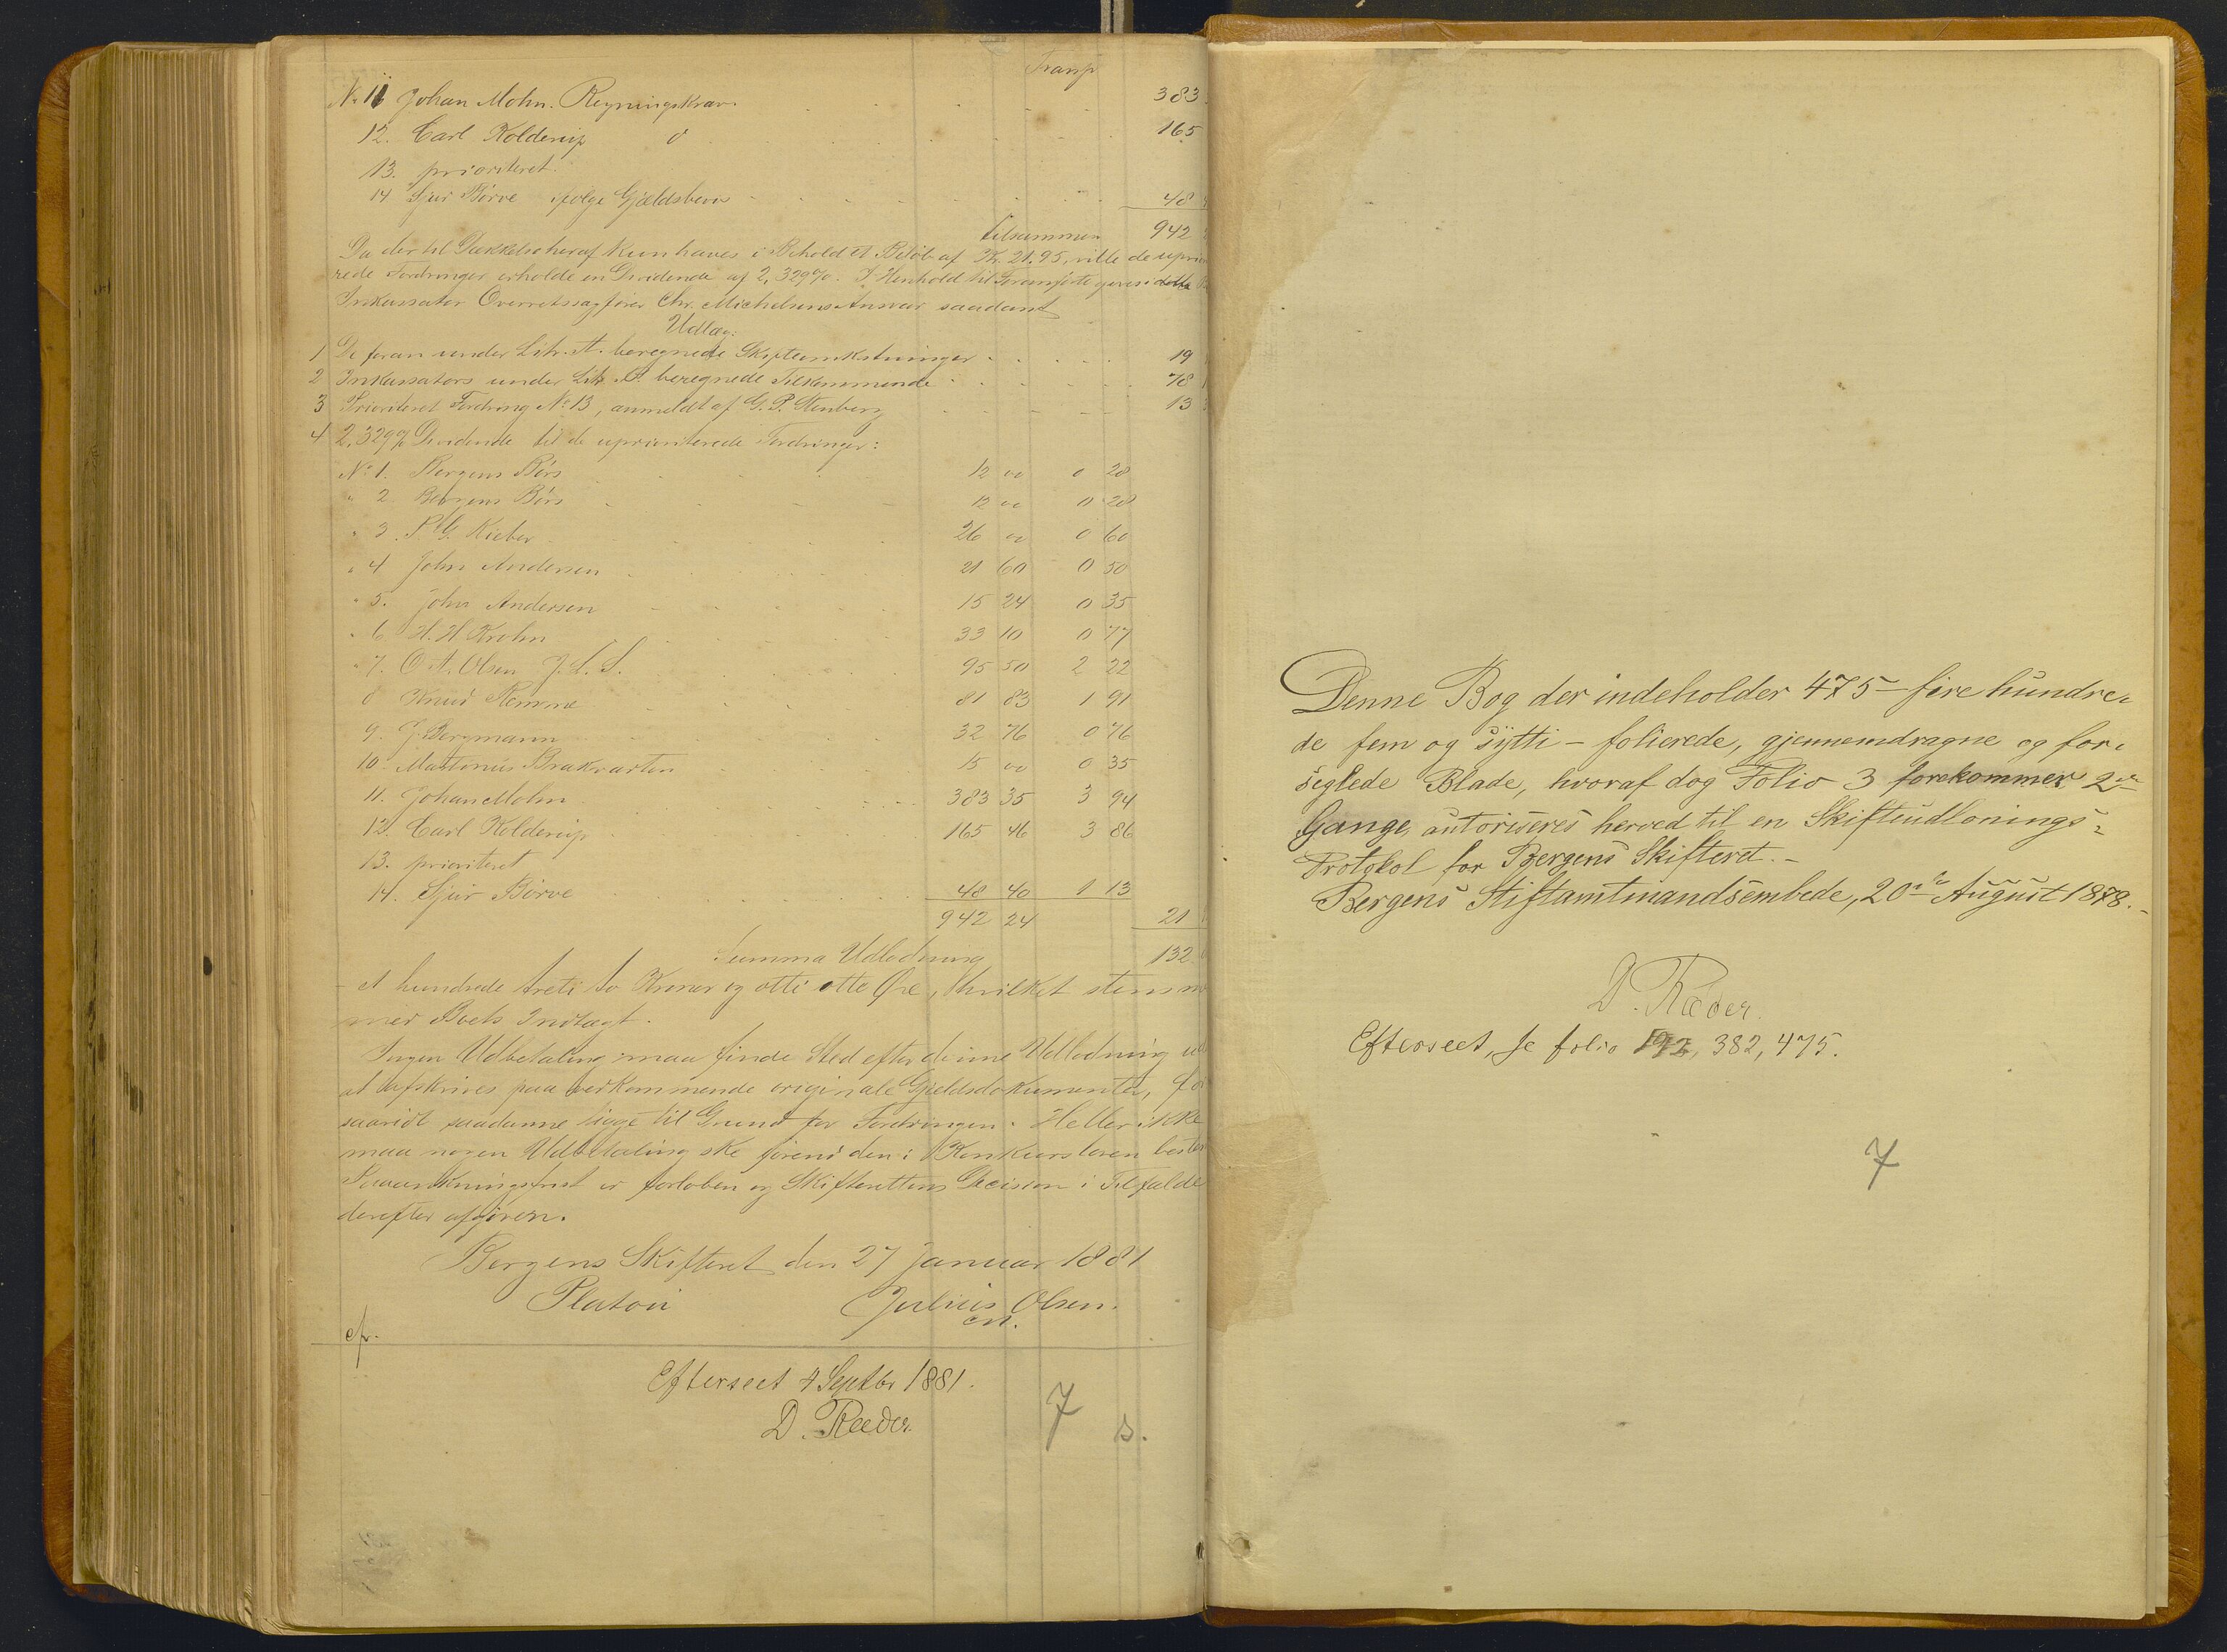 Transp
No 11 Johan Mohn. Regningskrav. 383
12. Carl Kolderup d 165
13. prioriteret.
14 Sjur Børve ifølge Gjældsbevis 48
tilsammen 942
Da der til Dækkelse heraf kun haves i Behold et Beløb af Kr. 21.95, ville de uprio
rede Fordringer erholde en Dividende af 2,329%. I Henhold til Foranførte gjøres i dette
Inkassator Overretssagfører Chr. Michelsens Ansvar saadant
Udlæg:
1 De foran under Litr. A. beregnede Skifteomkostninger 19
2 Inkassators under Litr. B. beregnede Tilkommende 78
3 Prioriteret Fordring No 13, anmeldt af G. P. Stenberg 13
4 2,329% Dividende til de uprioriterede Fordringer:
No 1. Bergens Børs 12 00 0 28
" 2. Bergens Børs 12 00 0 28
" 3. P. G. Rieber 26 00 0 60
" 4 John Andersen 21 60 0 50
" 5. John Andersen 15 24 0 35
" 6 H. H. Krohn 33 10 0 77
" 7. O. A. Olsen J. L. S. 95 50 2 22
8 Knud Remme 81 83 1 91
9. J. Bergmann 32 76 0 76
10. Martinus Brakvarten 15 00 0 35
11. Johan Mohn 383 35 3 94
12. Carl Kolderup 165 46 3 86
13. prioriteret
14. Sjur Børve 48 40 1 13
942 24 21
Summa Udlodning 132.
- et hundrede treti to Kroner og otti otte Øre, hvilket stemm
med Boets Indtægt.
Ingen Udbetaling maa finde Sted efter denne Udlodning ud
at afskrives paa vedkommende originale Gjeldsdokumenter, for
saavidt saadanne ligge til Grund for Fordringen. Heller ikke
maa nogen Udbetaling ske førend den i Konkursloven bestem
Paaankningsfrist er forløben og Skifterettens Decision i Tilfælde
derefter afgiven.
Bergens Skifteret den 27 Januar 1881
Platou Julius Olsen.
cst.
cfr.
Efterseet 4 Septbr 1881.
D. Ræder
7 s.
Denne Bog der indeholder 475 - fire hundre=
de fem og sytti - folierede, gjennemdragne og for=
seglede Blade, hvoraf dog Folio 3 forekommer 2de
Gange, autoriseres herved til en Skifteudlodnings=
Protokol for Bergens Skifteret. -
Bergens Stiftamtmandsembede, 20de August 1878. -
D. Ræder.
Efterseet, se folio 192, 382, 475.
7